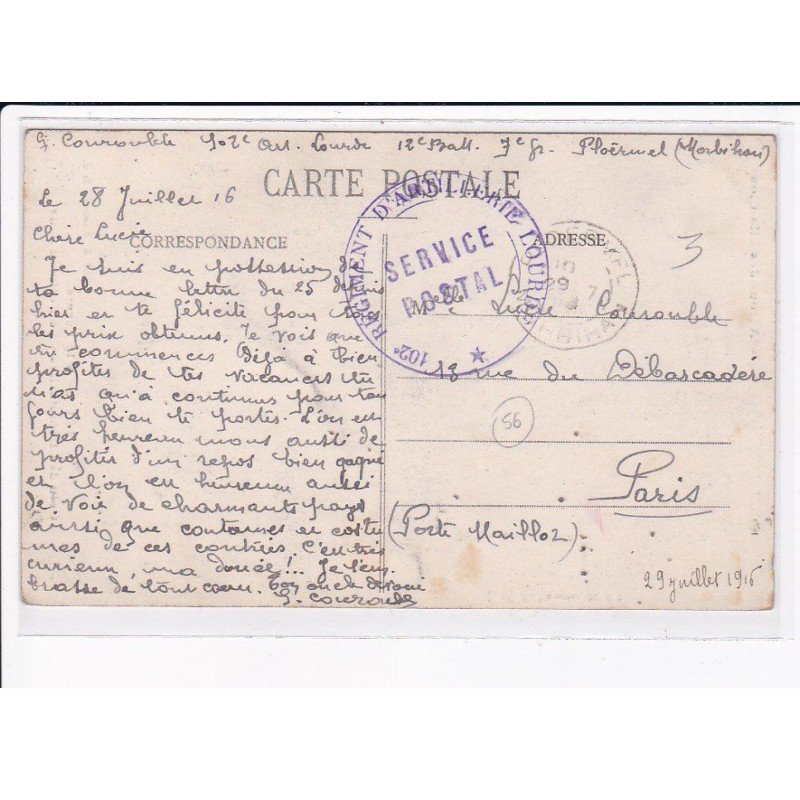 G. Courouble 102e Art. Lourde 12e Batt. 7e gr. Ploërmel (Morbihan)
CARTE POSTALE
CORRESPONDANCE
ADRESSE
Le 28 Juillet 16
Chère Lucie
Je suis en possession de
ta bonne lettre du 25 depuis
hier et te félicite pour tes
les prix obtenus. Je vois que
tu commences déjà à bien
profiter de tes vacances tu
n'as qu'à continuer pour tou
jours bien te porter. L'on est
très heureux nous aussi de
profiter d'un repos bien gagné
et l'on est heureux aussi
de voir de charmants pays
aussi que coutumes et costu
mes de ces contrées. C'est très
curieux, ma douce!.. Je t'em
brasse de tout coeur. Ton oncle dévoué
G. Courouble
102e REGIMENT D'ARTILLERIE LOURDE
SERVICE
POSTAL
29 7
MORBIHAN
3
Melle Lucie Courouble
18 rue du Débarcadère
56
Paris
(Porte Maillot)
29 juillet 1916